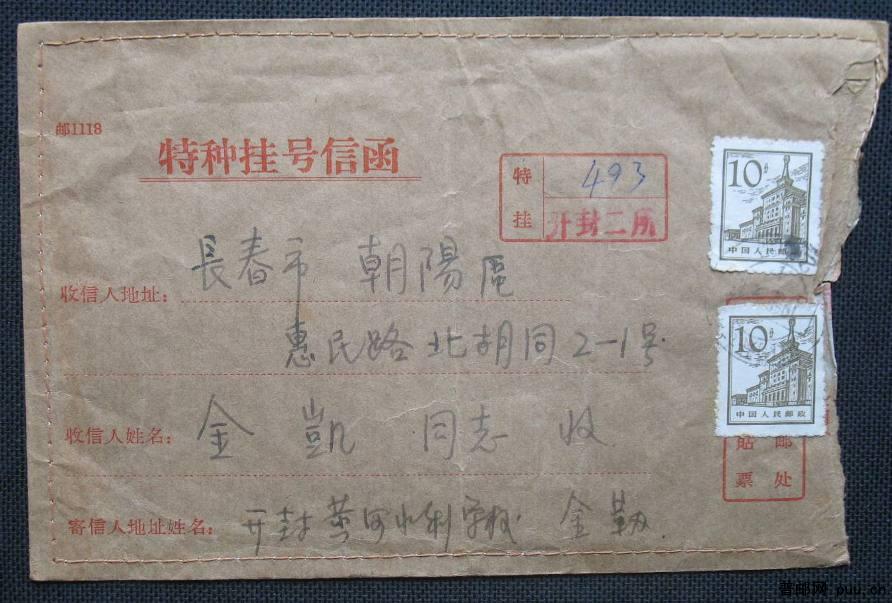 邮1118
特种挂号信函
特挂
493
开封二所
10分
中国人民邮政
收信人地址：
長春市 朝陽區
惠民路北胡同2-1号
10分
中国人民邮政
收信人姓名：
金 凱 同志 收
贴邮
票处
寄信人地址姓名：
开封黄河水利学校 金
普邮网 puu.cn